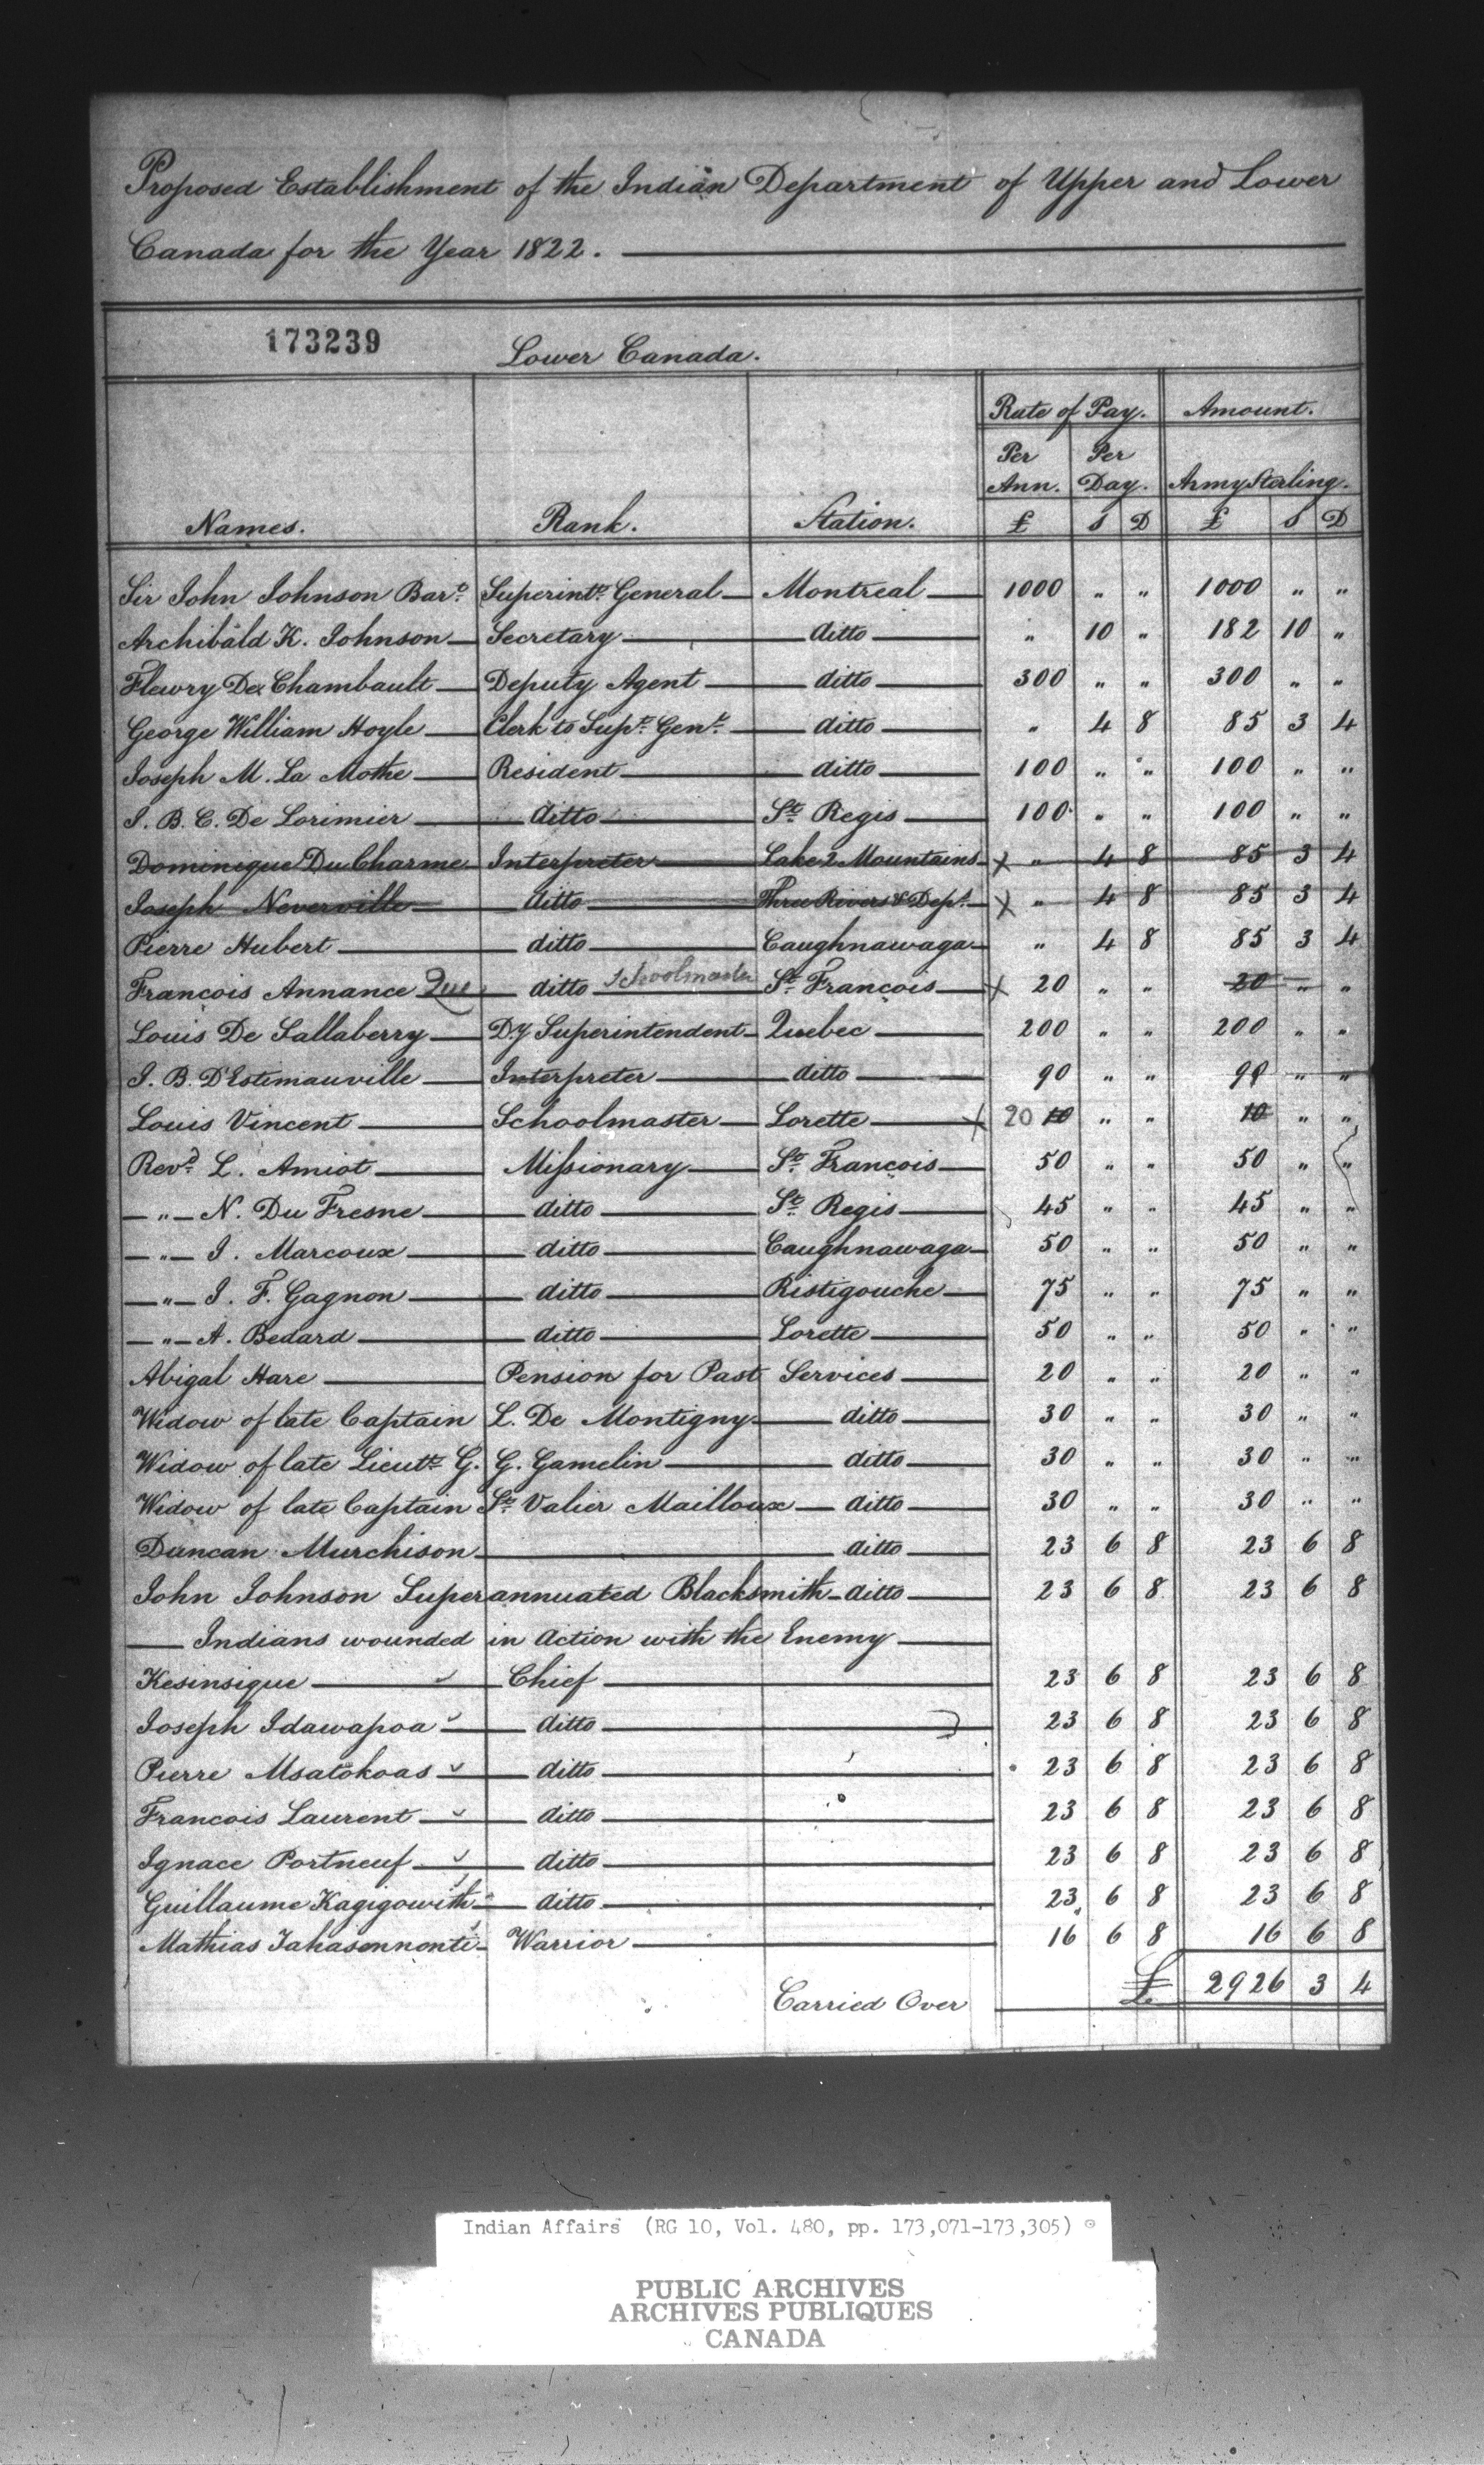 Proposed Establishment of the Indian Department of Upper and Lower
Canada for the Year 1822.
173239 Lower Canada.
Rate of Pay. Amount.
Per Ann. Per Day. Army Sterling.
Names. Rank. Station. £ S D £ S D
Sir John Johnson Bart. Superintt. General Montreal 1000 " " 1000 " "
Archibald K. Johnson Secretary ditto " 10 " 182 10 "
Fleury De Chambault Deputy Agent ditto 300 " " 300 " "
George William Hoyle Clerk to Supt. Genl. ditto " 4 8 85 3 4
Joseph M. La Mothe Resident ditto 100 " " 100 " "
J. B. C. De Lorimier ditto St. Regis 100 " " 100 " "
Dominique Du Charme Interpreter Lake 2 Mountains X " 4 8 85 3 4
Joseph Neverville ditto Three Rivers & Dept. X " 4 8 85 3 4
Pierre Hubert ditto Caughnawaga " 4 8 85 3 4
Francois Annance Que ditto Schoolmaster St. Francois X 20 " " 20 " "
Louis De Sallaberry Dy. Superintendent Quebec 200 " " 200 " "
J. B. D'Estimauville Interpreter ditto 90 " " 90 " "
Louis Vincent Schoolmaster Lorette X 20 10 " " 10 " "
Revd. L. Amiot Missionary St. Francois 50 " " 50 " "
" N. Du Fresne ditto St. Regis 45 " " 45 " "
" J. Marcoux ditto Caughnawaga 50 " " 50 " "
" J. F. Gagnon ditto Ristigouche 75 " " 75 " "
" A. Bedard ditto Lorette 50 " " 50 " "
Abigal Hare Pension for Past Services 20 " " 20 " "
Widow of late Captain L. De Montigny ditto 30 " " 30 " "
Widow of late Lieutt. G. G. Gamelin ditto 30 " " 30 " "
Widow of late Captain St. Valier Mailloux ditto 30 " " 30 " "
Duncan Murchison ditto 23 6 8 23 6 8
John Johnson Superannuated Blacksmith ditto 23 6 8 23 6 8
Indians wounded in Action with the Enemy
Kesinsique Chief 23 6 8 23 6 8
Joseph Idawapoa ditto 23 6 8 23 6 8
Pierre Msatokoas ditto 23 6 8 23 6 8
Francois Laurent ditto 23 6 8 23 6 8
Ignace Portneuf ditto 23 6 8 23 6 8
Guillaume Kagigowith ditto 23 6 8 23 6 8
Mathias Tahasennonte Warrior 16 6 8 16 6 8
Carried Over £ 2926 3 4
Indian Affairs (RG 10, Vol. 480, pp. 173,071-173,305)
PUBLIC ARCHIVES
ARCHIVES PUBLIQUES
CANADA